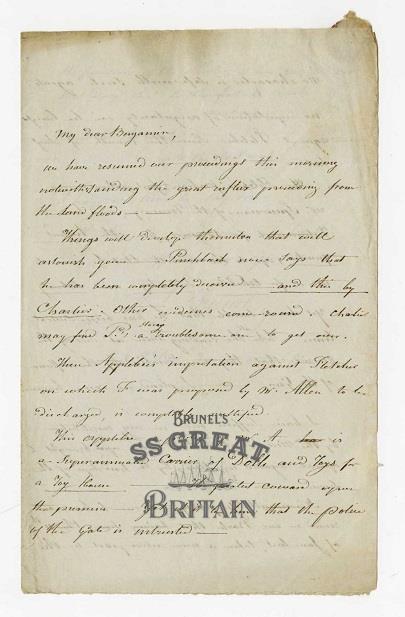 My dear Benjamin,
we have resumed our proceedings this morning
notwithstanding the great influx proceeding from
the land floods —
Things will develop themselves that will
astonish you — Pinchback now says that
he has been completely deceived — and this by
Charlier. Other evidences come round & Charlier
may find P. a strong troublesome one to get over.
Then Applebie's imputation against Fletcher
on which F was proposed by Mr Allen to be
discharged, is completely
This A is
a Superannuated Carrier of Dolls and Toys for
a Toy House — coward upon
the premises — that the police
of the Gate is intrusted —
BRUNEL'S
SS GREAT
BRITAIN